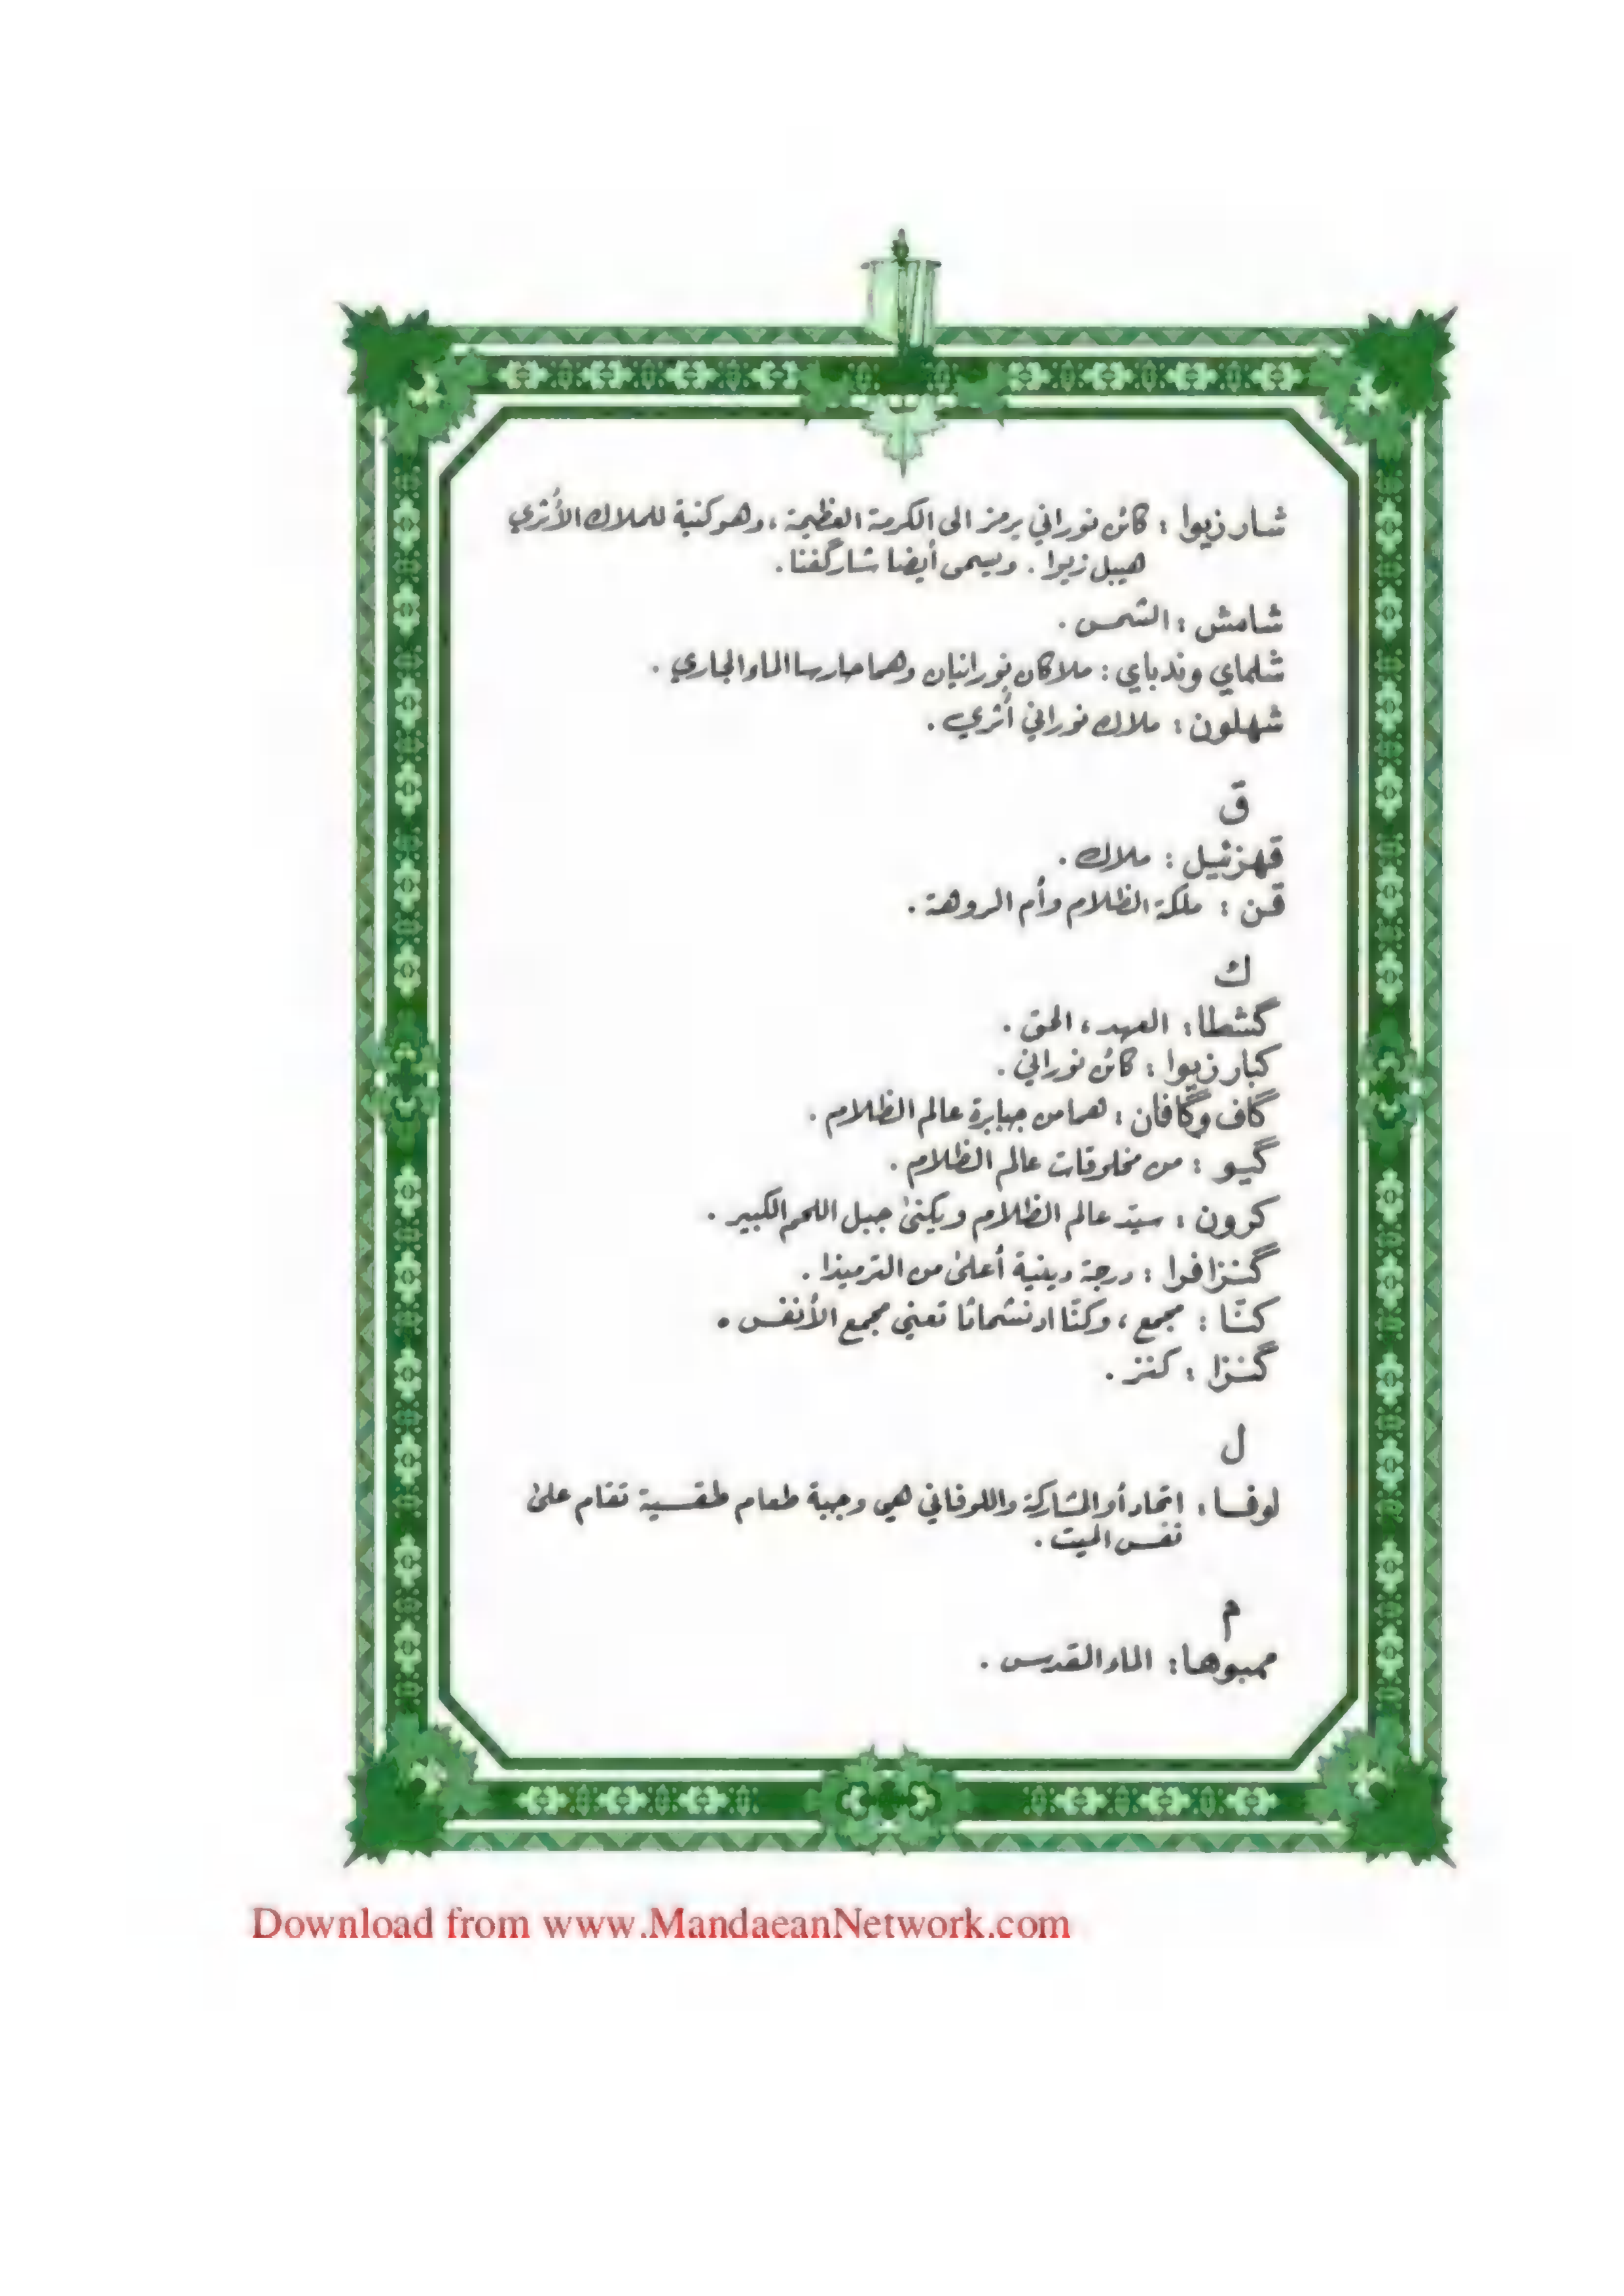 شار زيوا : كائن نوراني يرمز الى الكرمة العظيمة ، وهو كنية للملاك الأُثري
هيبل زيوا . ويسمى أيضا شار گفنا .
شامش : الشمس .
شلماي وندباي : ملاكان نورانيان وهما حارسا الماء الجاري .
شهلون : ملاك نوراني أُثري .
ق
قهزئيل : ملاك .
قن : ملكة الظلام وأم الروهة .
ك
گشطا : العهد ، الحق .
كبار زيوا : كائن نوراني .
گاف وگافان : هما من جبابرة عالم الظلام .
گيو : من مخلوقات عالم الظلام .
كرون : سيّد عالم الظلام ويكنىٰ جبل اللحم الكبير .
گنزافرا : درجة دينية أعلىٰ من الترميذا .
كنّا : مجمع ، وكنّا اد نشماثا تعني مجمع الأنفس .
گنزا : كنز .
ل
لوفا : اتحاد أو المشاركة واللوفاني هي وجبة طعام طقسية تقام علىٰ
نفس الميت .
م
ممبوها : الماء القدس .
Download from www.MandaeanNetwork.com